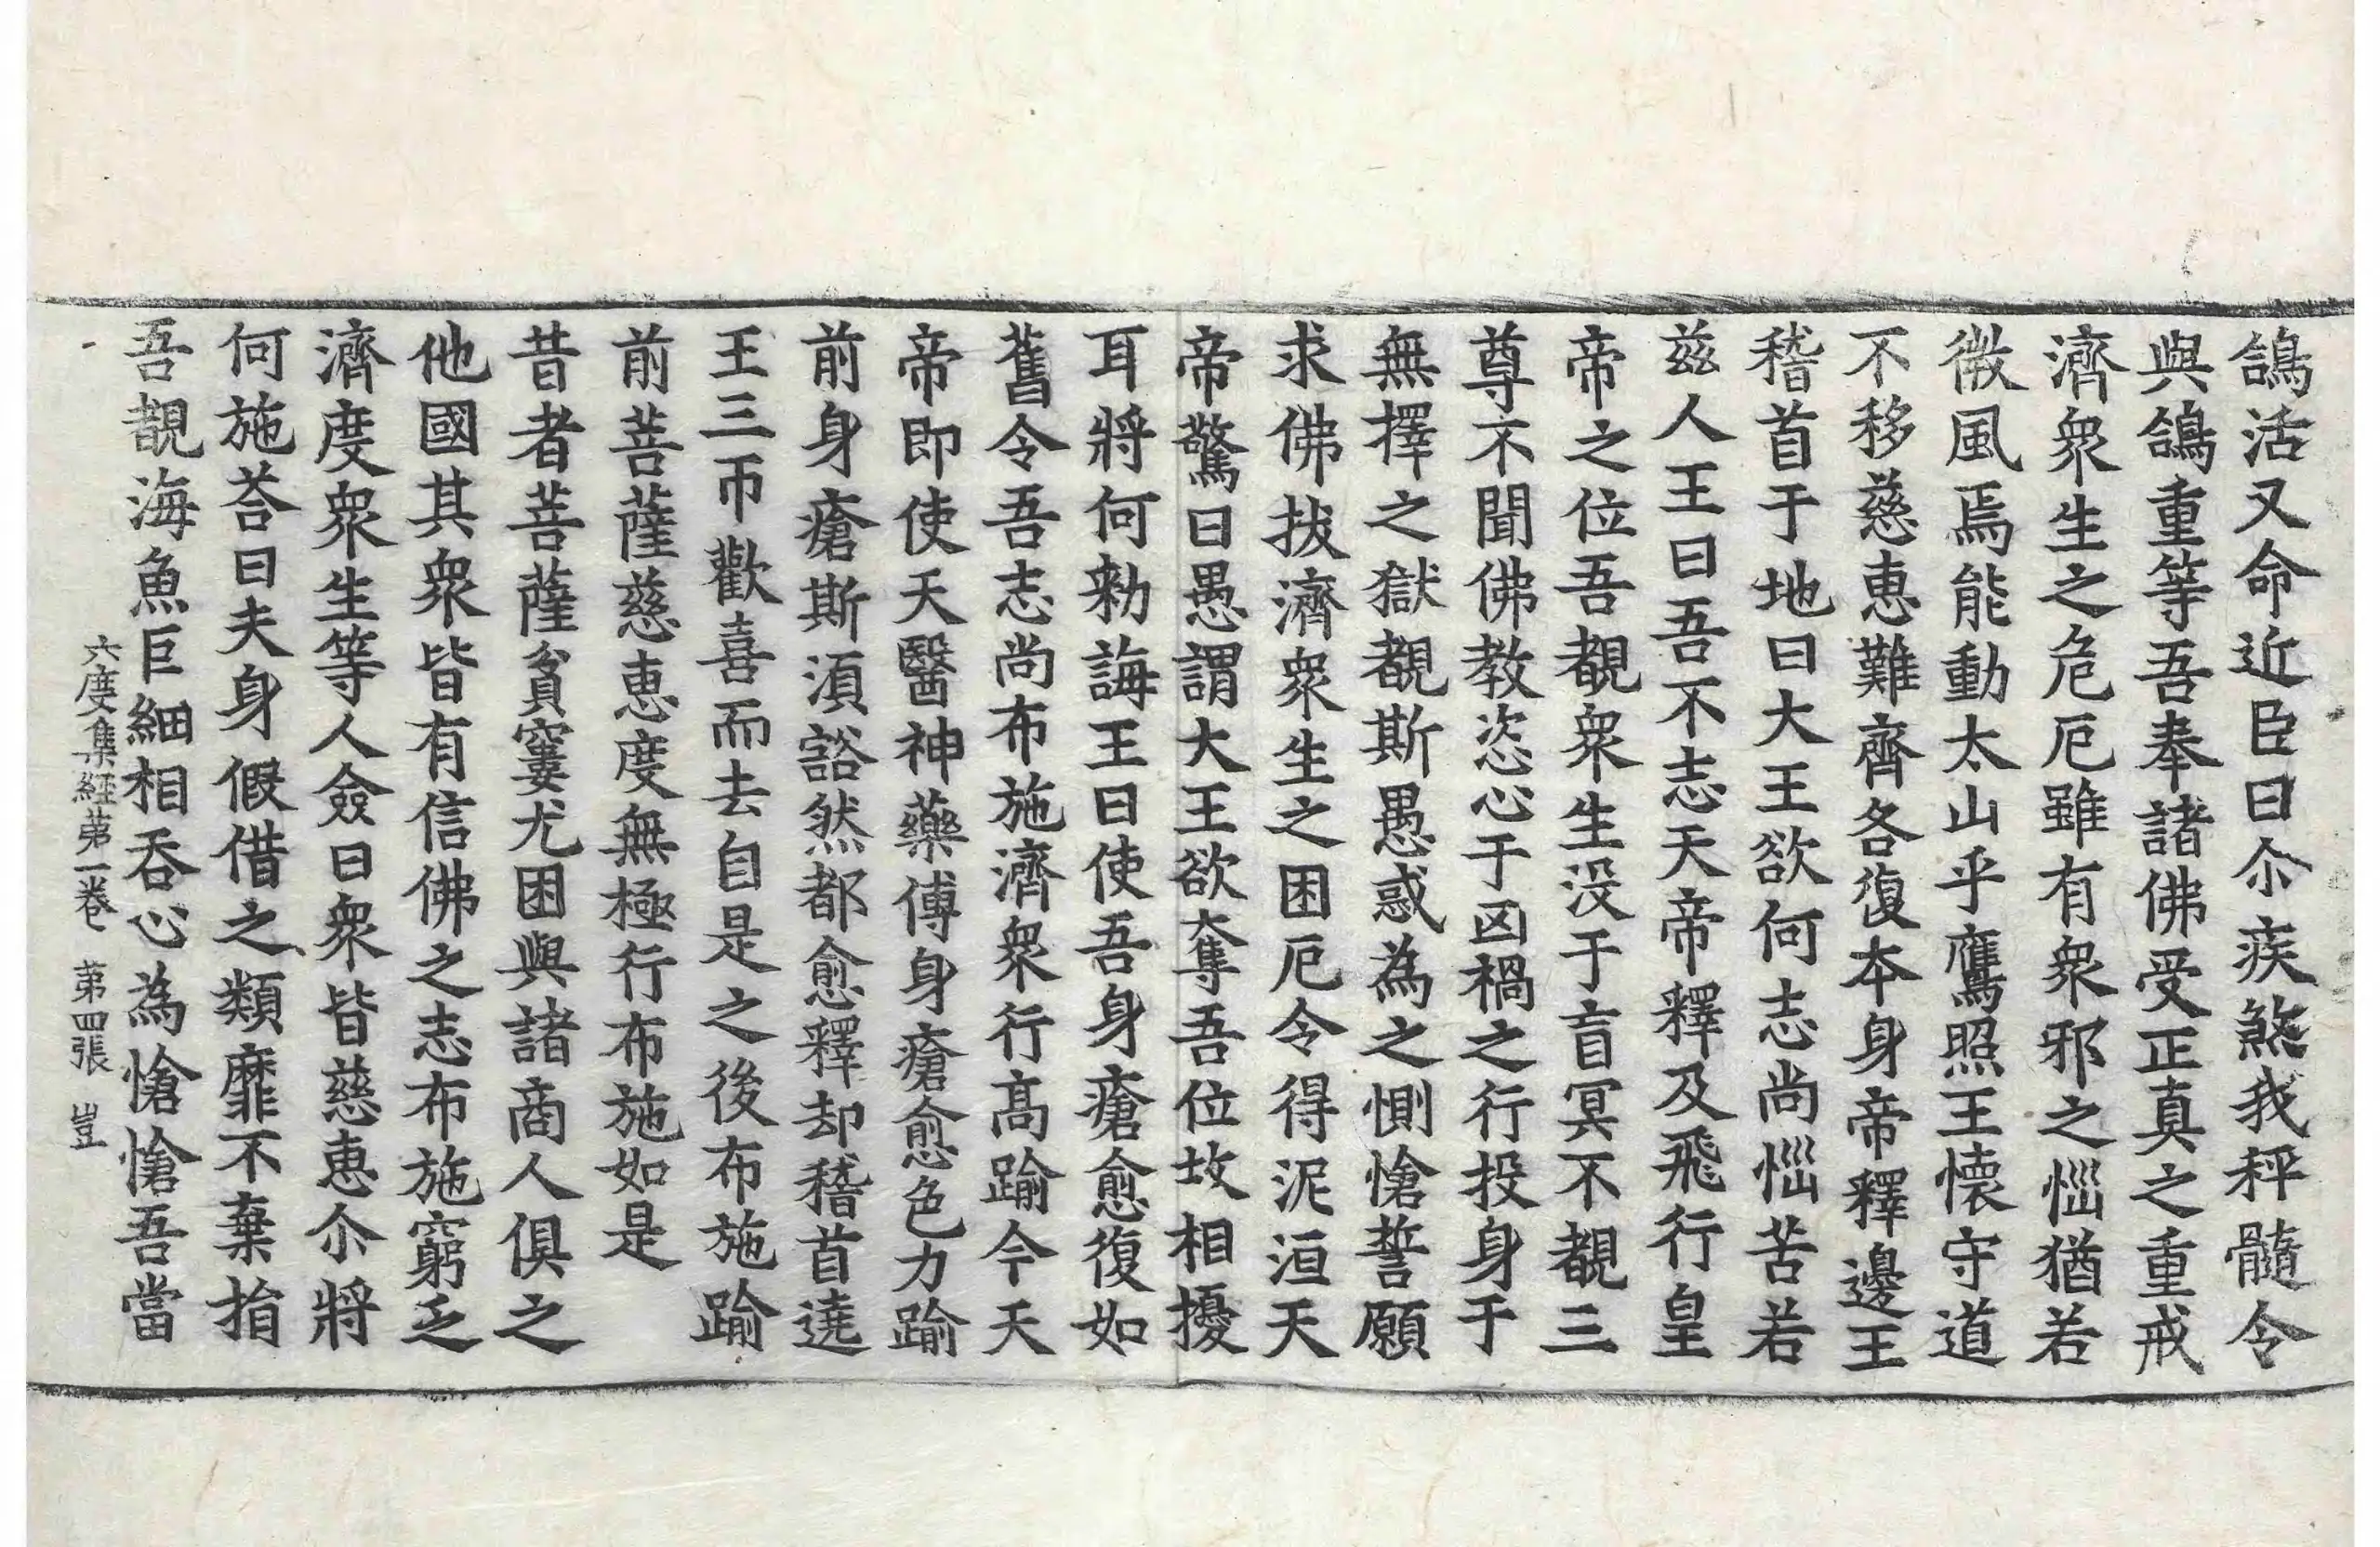 鴿活又命近臣曰尒疾煞我秤髓令
與鴿重等吾奉諸佛受正真之重戒
濟衆生之危厄雖有衆邪之㤢猶若
微風焉能動太山乎鷹照王懷守道
不移慈惠難齊各復本身帝釋邊王
稽首于地曰大王欲何志尚㤢苦若
兹人王曰吾不志天帝釋及飛行皇
帝之位吾覩衆生没于盲冥不覩三
尊不聞佛教恣心于凶禍之行投身于
無擇之獄覩斯愚惑為之惻愴誓願
求佛拔濟衆生之困厄令得泥洹天
帝驚曰愚謂大王欲奪吾位故相擾
耳將何勑誨王曰使吾身瘡愈復如
舊令吾志尚布施濟衆行高踰今天
帝即使天醫神藥傅身瘡愈色力踰
前身瘡斯須豁然都愈釋却稽首遶
王三帀歡喜而去自是之後布施踰
前菩薩慈惠度無極行布施如是
昔者菩薩貧窶尤困與諸商人俱之
他國其衆皆有信佛之志布施窮乏
濟度衆生等人僉曰衆皆慈惠尒將
何施荅曰夫身假借之類靡不棄捐
吾覩海魚巨細相吞心為愴愴吾當
六度集經第一卷　第四張　豈